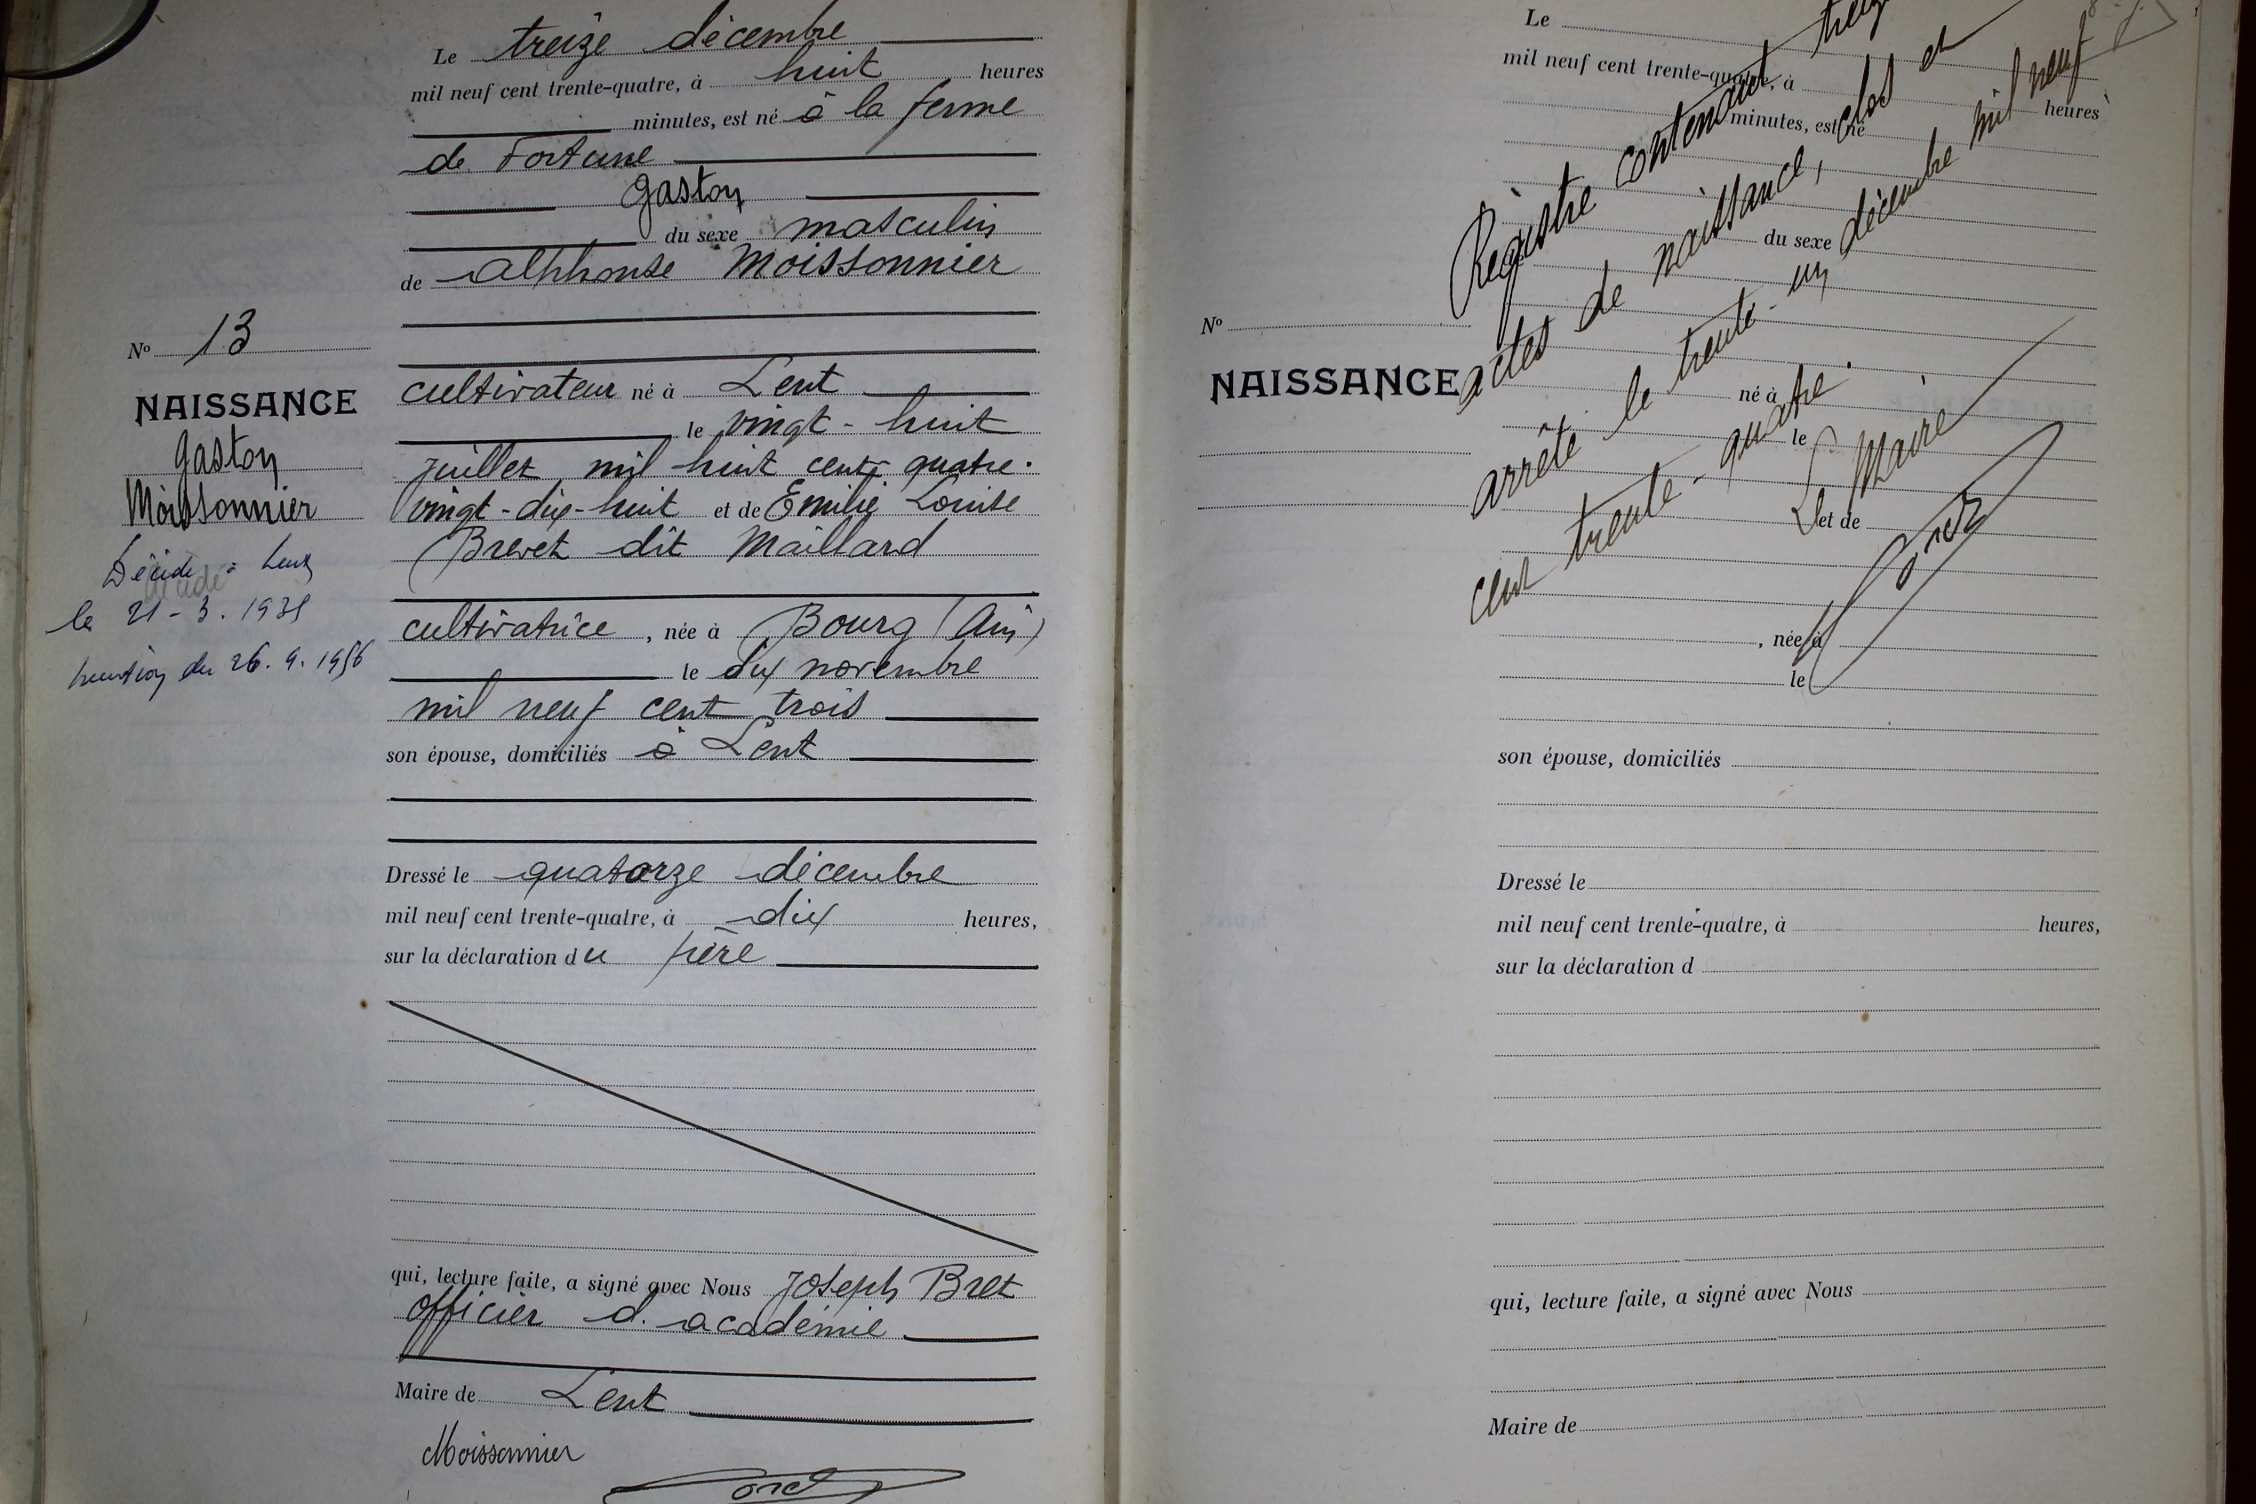 Le treize décembre
mil neuf cent trente-quatre, à huit heures
minutes, est né à la ferme
de Fortune
Gaston
du sexe masculin
de Alphonse Moissonnier
cultivateur né à Lent
le vingt-huit
juillet mil huit cent quatre-
vingt-dix-huit et de Emilie Louise
Brevet dit Maillard
cultivatrice, née à Bourg (Ain)
le dix novembre
mil neuf cent trois
son épouse, domiciliés à Lent
Dressé le quatorze décembre
mil neuf cent trente-quatre, à dix heures,
sur la déclaration du père
qui, lecture faite, a signé avec Nous Joseph Bret
officier d'académie
Maire de Lent
Moissonnier
Bret
No 13
NAISSANCE
Gaston
Moissonnier
Décédé à Lent
le 21-3.
mention du 26.9.1956
Le
mil neuf cent trente-quatre, à
heures
minutes, est né
du sexe
No
NAISSANCE
né à
le
et de
, née à
le
son épouse, domiciliés
Dressé le
mil neuf cent trente-quatre, à heures,
sur la déclaration d
qui, lecture faite, a signé avec Nous
Maire de
Registre contenant treize
actes de naissance, clos et
arrêté le trente-un décembre mil neuf
cent trente-quatre.
Le Maire
Bret